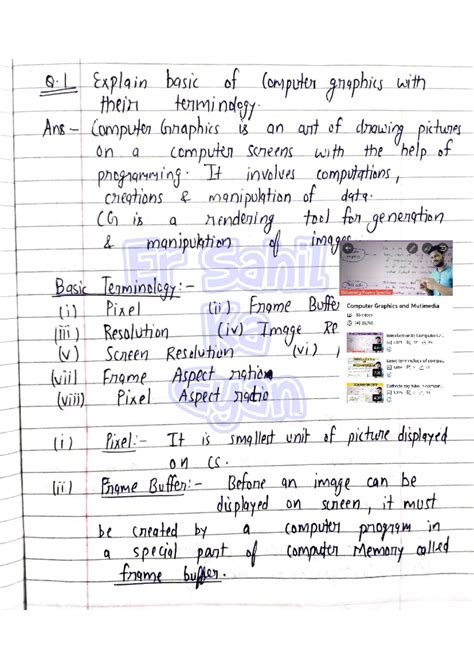 Q.1 Explain basic of Computer graphics with
their terminology.
Ans:- Computer Graphics is an art of drawing pictures
on a computer screens with the help of
programming. It involves computations,
creations & manipulation of data.
CG is a rendering tool for generation
& manipulation of images
Er Sahil
Ka
Gyan
Computer Graphics and Mutimedia
Basic Terminology:-
(i) Pixel (ii) Frame Buffer
(iii) Resolution (iv) Image Re
(v) Screen Resolution (vi)
(vii) Frame Aspect ration
(viii) Pixel Aspect radio
(i) Pixel:- It is smallest unit of picture displayed
on CS.
(ii) Frame Buffer:- Before an image can be
displayed on screen, it must
be created by a computer program in
a special part of computer Memory called
frame buffer.